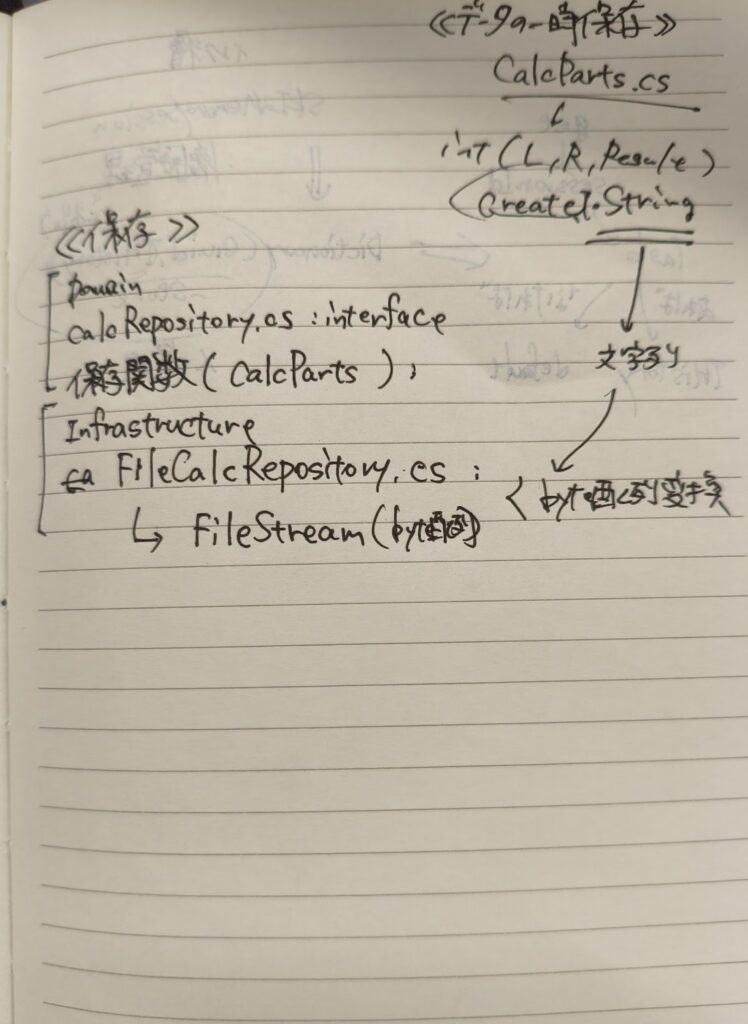 ≪データ一時保存≫
CalcParts.cs
int (L, R, Result)
CreateI.String
文字列
byte配列変換
≪保存≫
Domain
calcRepository.cs : interface
保存関数 ( CalcParts ) ;
Infrastructure
FileCalcRepository.cs ;
↳ FileStream (byte配列)